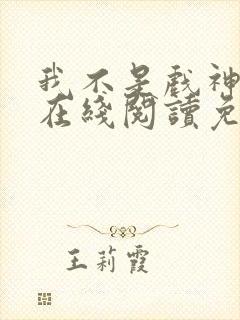 我不是戏神
在綫閱讀免
王莉霞